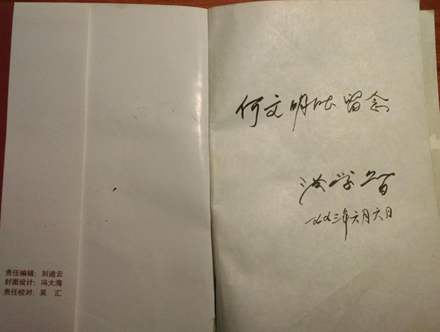 责任编辑：刘迪云
封面设计：冯大海
责任校对：吴汇
何文明 留念
洪学智
一九九三年六月六日